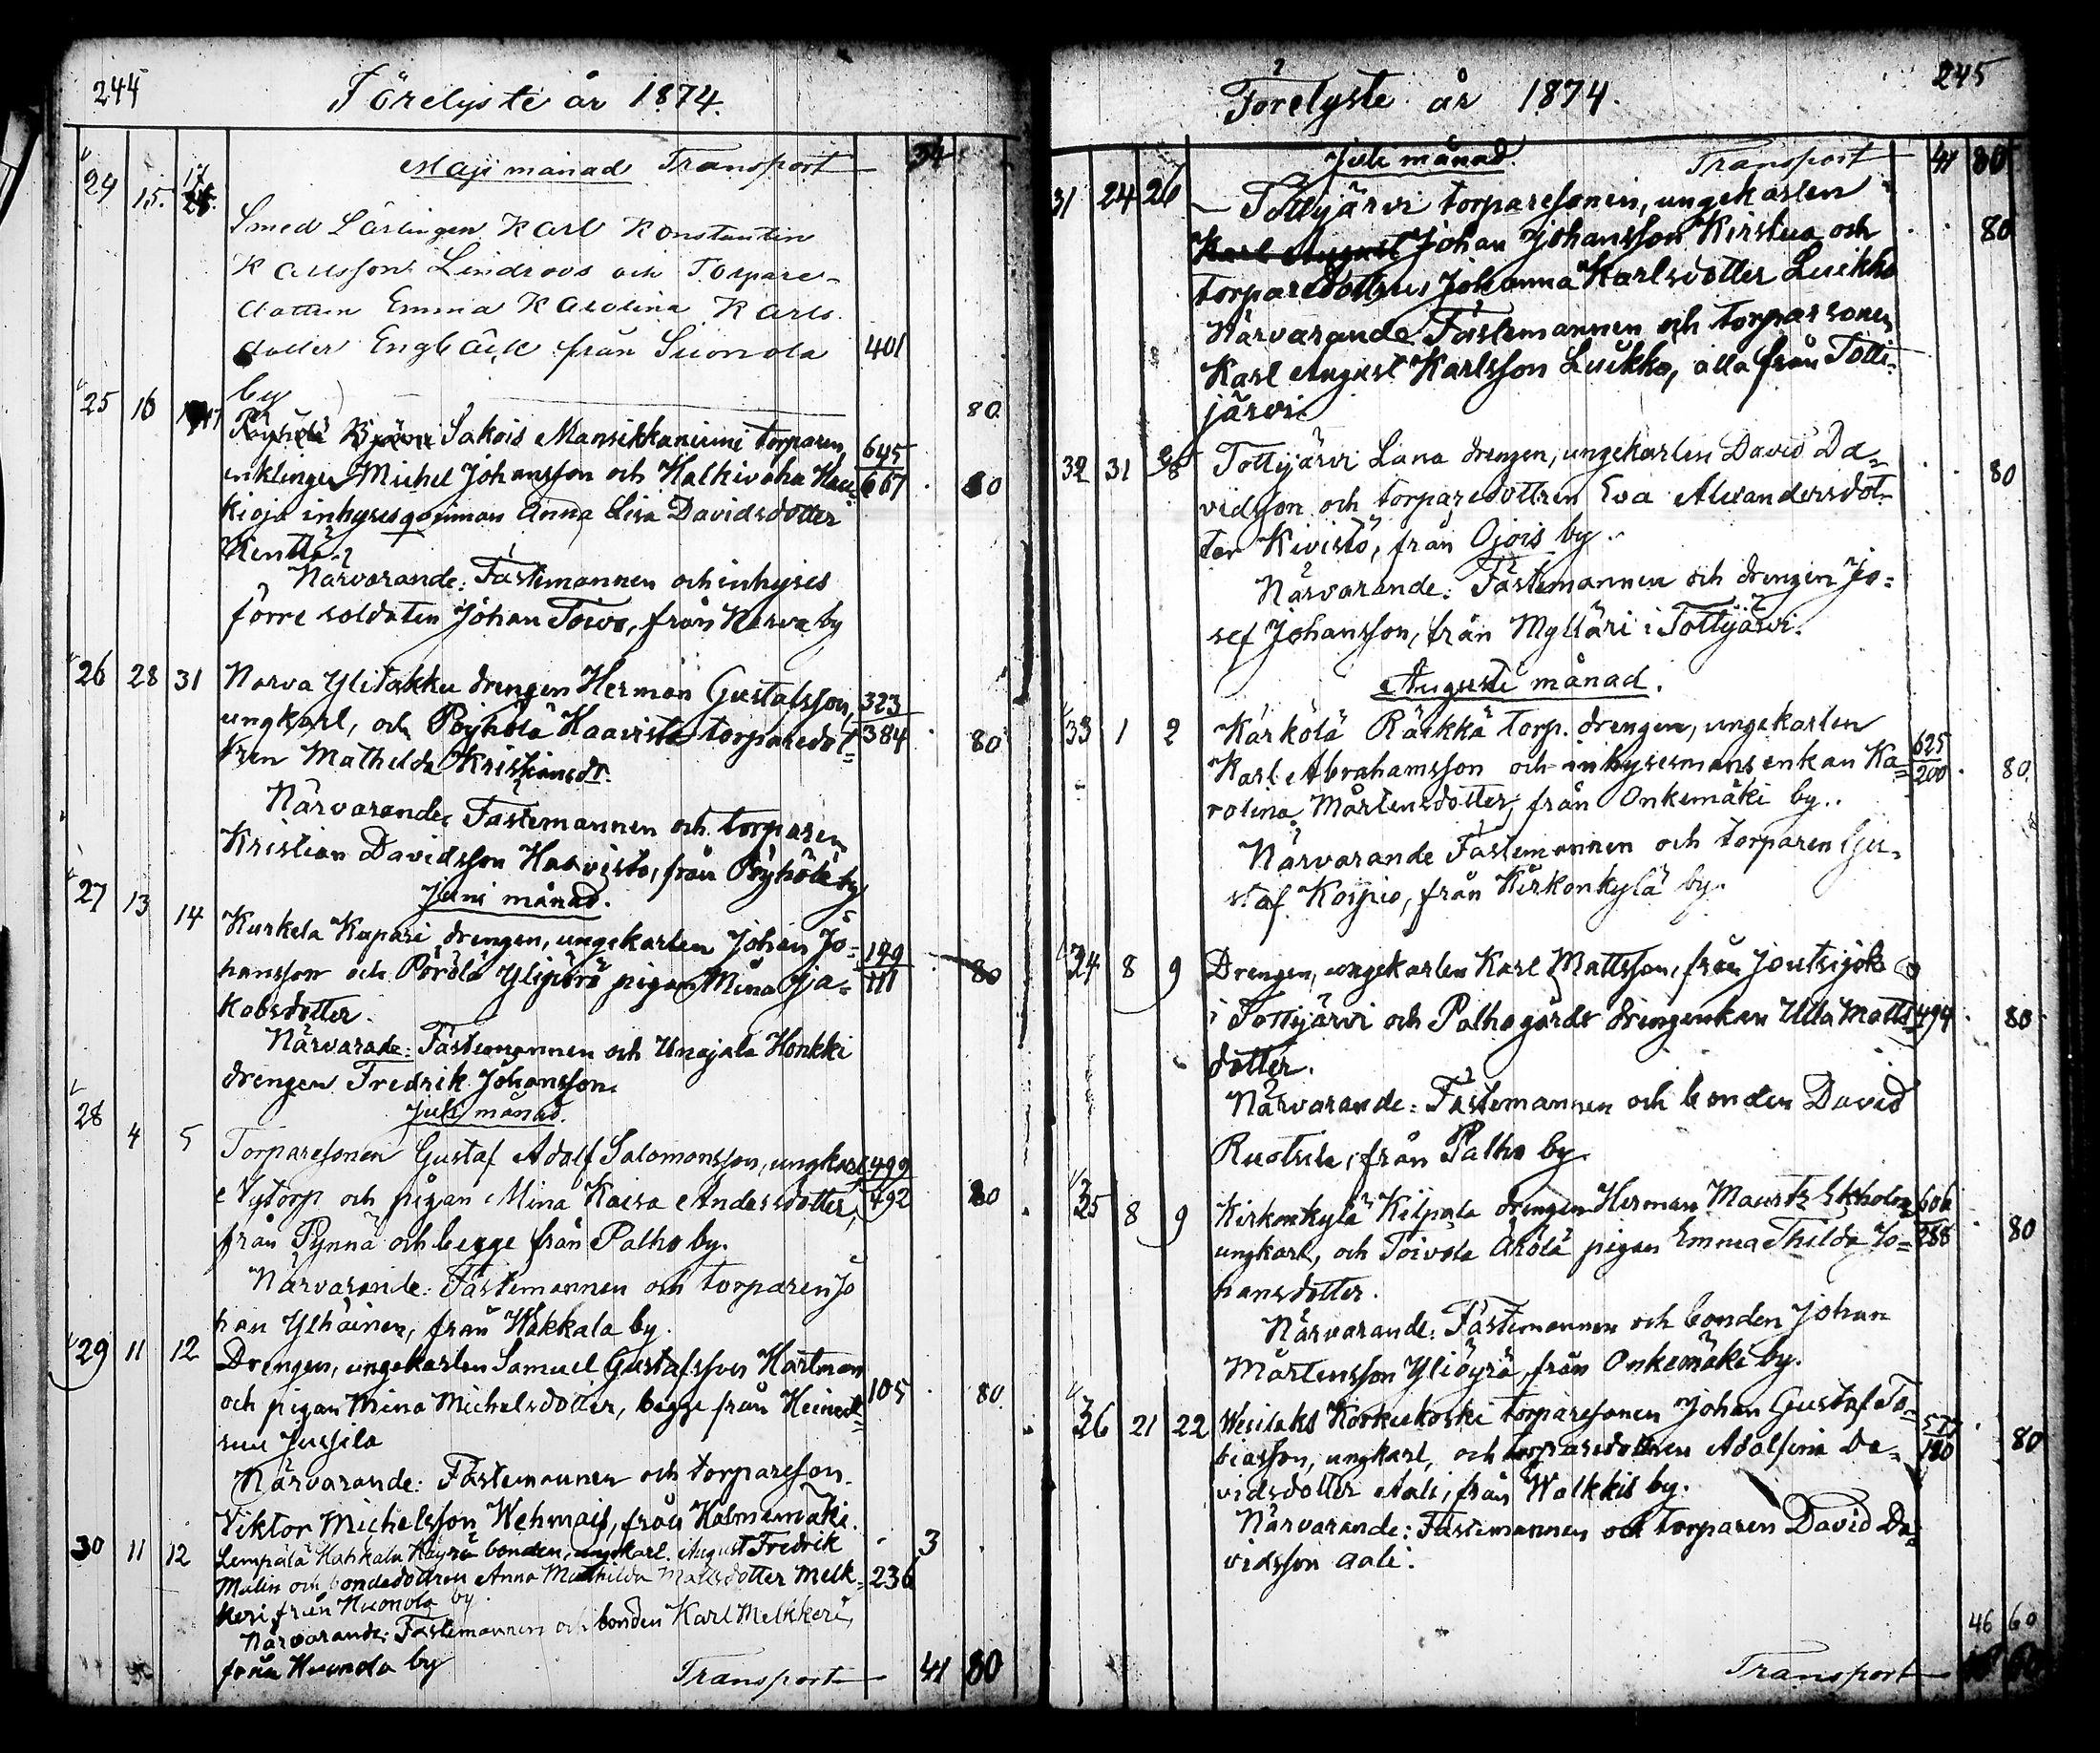 244
Förelyste år 1874.
Maji månad Transport 34
24 15. 17
Smed Lärlingen Karl Konstantin
Karlsson Lindroos och Torpare-
dottren Emma Karolina Karls
dotter Engbäck från Suonola 401
by 80.
25 16 17 Sakois Mansikkaniemi torparen, 645
enklingen Michel Johansson och Halkivaha Hau 667 80
kioja inhyses qvinnan Anna Lisa Davidsdotter
Kenttä.
Närvarande: Fästemannen och inhyses
förre soldaten Johan Toivo, från Narva by
26 28 31 Narva Ylitakku drengen Herman Gustafsson, 323
ungkarl, och Pöyhölä Haavisto torparedot- 384 80
tren Mathilda Kristiansdr.
Närvarande Fästemannen och torparen
Kristian Davidsson Haavisto, från Pöyhölä by
Juni månad.
27 13 14 Kurkela Kupari drengen, ungekarlen Johan Jo- 199
hansson och Pörölä Ylipörö pigan Mina Ja- 111 80
kobsdotter.
Närvarade: Fästemannen och Unajala Honkki
drengen Fredrik Johansson.
Juli månad.
28 4 5 Torparesonen Gustaf Adolf Salomonsson, ungkarl 499
Nytorp och pigan Mina Kaisa Andersdotter, 492 80
från Pynnä och begge från Palho by.
Närvarande: Fästemannen och torparen Jo
han Ylhäinen, från Wakkala by.
29 11 12 Drengen, ungekarlen Samuel Gustafsson Hartman
och pigan Mina Michelsdotter, begge från Heined 105 80.
suu Jussila
Närvarande: Fästemannen och torpareson.
Viktor Michelsson Wehmais, från Halmemäki.
30 11 12 Lempälä Hahkala Knyrä bonden, ungkarl. August Fredrik 3
Malin och bondedottren Anna Mathilda Mattsdotter Melk- 236
keri från Huonola by
Närvarande: Fästemannen och bonden Karl Melkkeri,
från Huonola by
Transport 41 80
245
Förelyste år 1874.
Juli månad. Transport 41 80
31 24 26 Tottijärvi torparesonen, ungekarlen
Karl August Johan Johansson Kirstua och 80
torparedottren Johanna Karlsdotter Luikko
Närvarande Fästemannen och torparsonen
Karl August Karlsson Luikko, alla från Totti-
järvi.
32 31 Tottijärvi Lana drengen, ungekarlen David Da- 80
vidsson och torparedottren Eva Alexandersdot-
ter Kivistö, från Ojois by.
Närvarande: Fästemannen och drengen Jo-
sef Johansson, från Mylläri i Tottijärvi.
Augusti månad.
33 1 2 Kärkölä Räikkä torp. drengen, ungekarlen 625
Karl Abrahamsson och inhysesmansenkan Ka- 200 80.
rolina Mårtensdotter, från Onkemäki by.
Närvarande Fästemannen och torparen Gu-
staf Korpio, från Kirkonkylä by.
34 8 9 Drengen, ungekarlen Karl Mattsson, från Joutsijoki
i Tottijärvi och Palhogårds drengenkan Ulla Matts 494 80
dotter.
Närvarande: Fästemannen och bonden David
Ruotsila, från Palho by
35 8 9 Kirkonkylä Kilpala drengen Herman Mauritz Ekholm, 606
ungkarl, och Toivola Arola pigan Emma Thilda Jo- 288 80
hansdotter.
Närvarande: Fästemannen och bonden Johan
Mårtensson Yliöyrä, från Onkemäki by.
36 21 22 Wesilaks Korkeekoski torparesonen Johan Gustaf To- 577
biasson, ungkarl, och torparedottren Adolfina Da- 180 80
vidsdotter Aali, från Walkkis by.
Närvarande: Fästemannen och torparen David Da-
vidsson Aali.
46 60
Transport